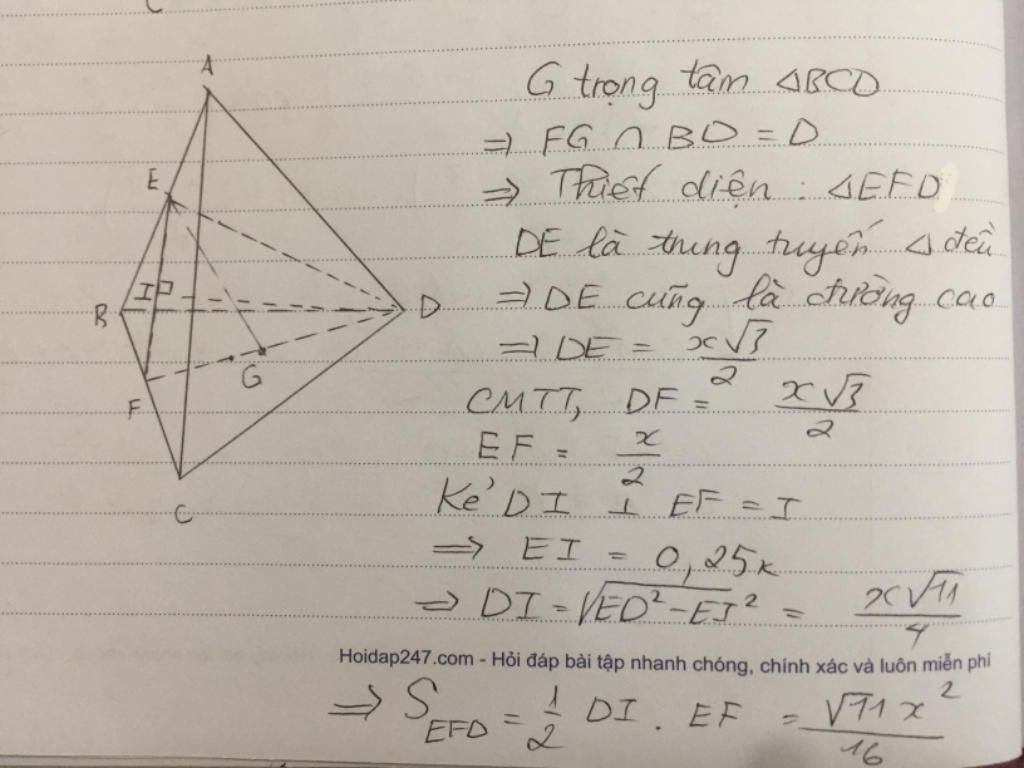 A
E
I
B
D
G
F
C
G trọng tâm △BCD
⇒ FG ∩ BD = D
⇒ Thiết diện : △EFD
DE là trung tuyến △ đều
⇒ DE cũng là đường cao
⇒ DE = x√3/2
CMTT, DF = x√3/2
EF = x/2
Kẻ DI ⊥ EF = I
⇒ EI = 0,25x
⇒ DI = √(ED² - EI²) = x√11/4
Hoidap247.com - Hỏi đáp bài tập nhanh chóng, chính xác và luôn miễn phí
⇒ S_EFD = 1/2 DI . EF = √11 x²/16